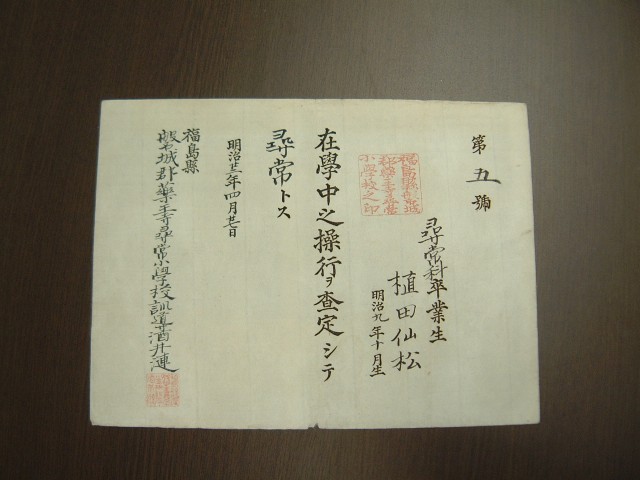 第五號
尋常科卒業生
植田仙松
明治九年十月生
在學中之操行ヲ査定シテ
尋常トス
明治廿三年四月廿日
福島縣
磐城郡藥王寺尋常小學校訓導酒井連